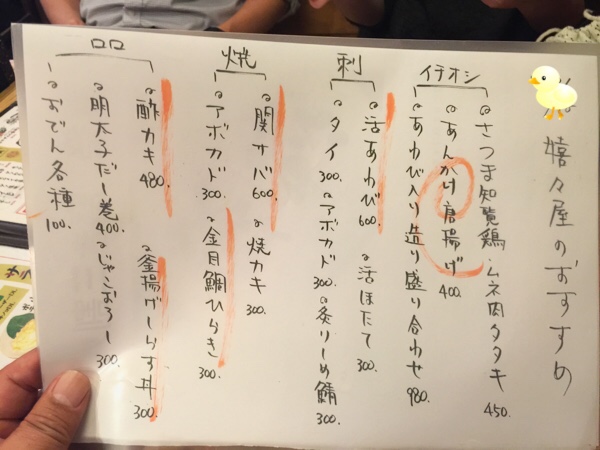 嬉々屋のおすすめ
イチオシ
さつま知覧鶏・ムネ肉タタキ 450.
あんかけ唐揚げ 400.
あわび入り造り盛り合わせ 980.
刺
活あわび 600. 活ほたて 300.
タイ 300. アボカド 300. 炙りしめ鯖 300.
焼
関サバ 600. 焼カキ 300.
アボカド 300. 金目鯛ひらき 300.
一品
酢カキ 480. 釜揚げしらす丼 300.
明太子だし巻 400. じゃこおろし 300.
おでん各種 100.